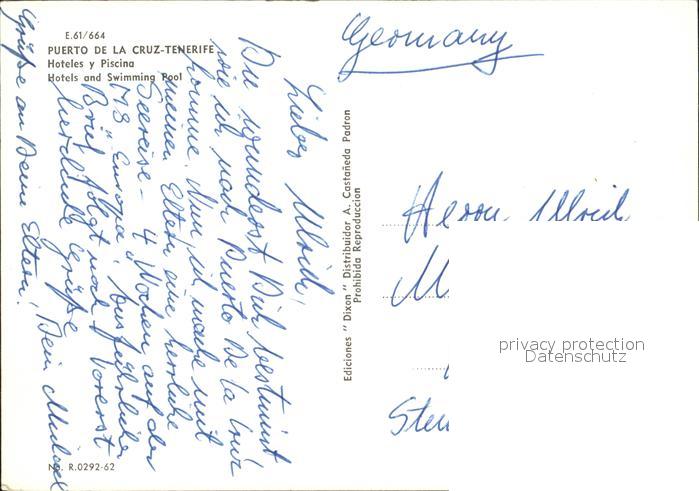 E.61/664
PUERTO DE LA CRUZ-TENERIFE
Hoteles y Piscina
Hotels and Swimming Pool
Lieber Ulrich,
Du wunderst Dich bestimmt
wie ich nach Puerto De la Cruz
komme. Nun ich mache mit
meinen Eltern eine herrliche
Seereise - 4 Wochen auf der
MS "Europa". Ausführlicher
Brief folgt noch. Vorerst
herzliche Grüße
Dein Michael
Grüße an Deine Eltern!
No. R.0292-62
Ediciones "Dixon" Distribuidor A. Castañeda Padron
Prohibida Reproduccion
Germany
Herrn Ulrich
M
Stu
privacy protection
Datenschutz